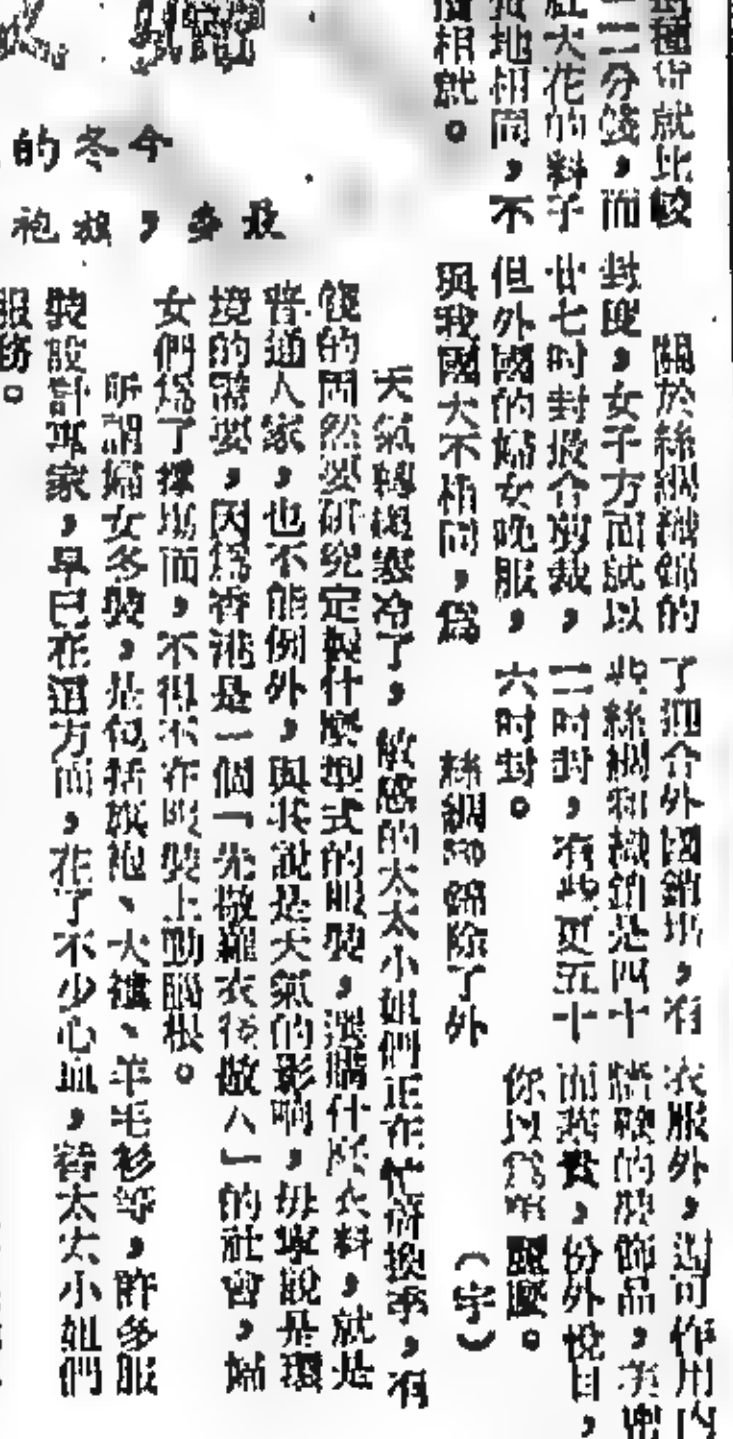 對種貨就比較
二分錢，而
紅大花的料子
地相同，不
相就。
關於絲綢織錦的
封度，女子方面就以
廿七吋封最合剪裁，
但外國的婦女晚服，
與我國大不相同，爲
了迎合外國銷場，有
些絲綢和織錦是四十
二吋封，有些更五十
六吋封。
絲綢織錦除了外
衣服外，還可作用內
的裝飾品，美
而 貴，份外悅目，
你以爲 麼。
（宇）
的冬今
袍旗，多最
天氣轉趨寒冷了，敏感的太太小姐們正在忙着換季，有
錢的固然要研究定製什麼型式的服裝，選購什麼衣料，就是
普通人家，也不能例外，與其說是天氣的影响，毋寧說是環
境的需要，因爲香港是一個「先敬羅衣後敬人」的社會，婦
女們爲了撑場面，不得不在服裝上動腦根。
所謂婦女冬裝，是包括旗袍、大褸、羊毛衫等，許多服
裝設計專家，早已在這方面，花了不少心血，替太太小姐們
服務。